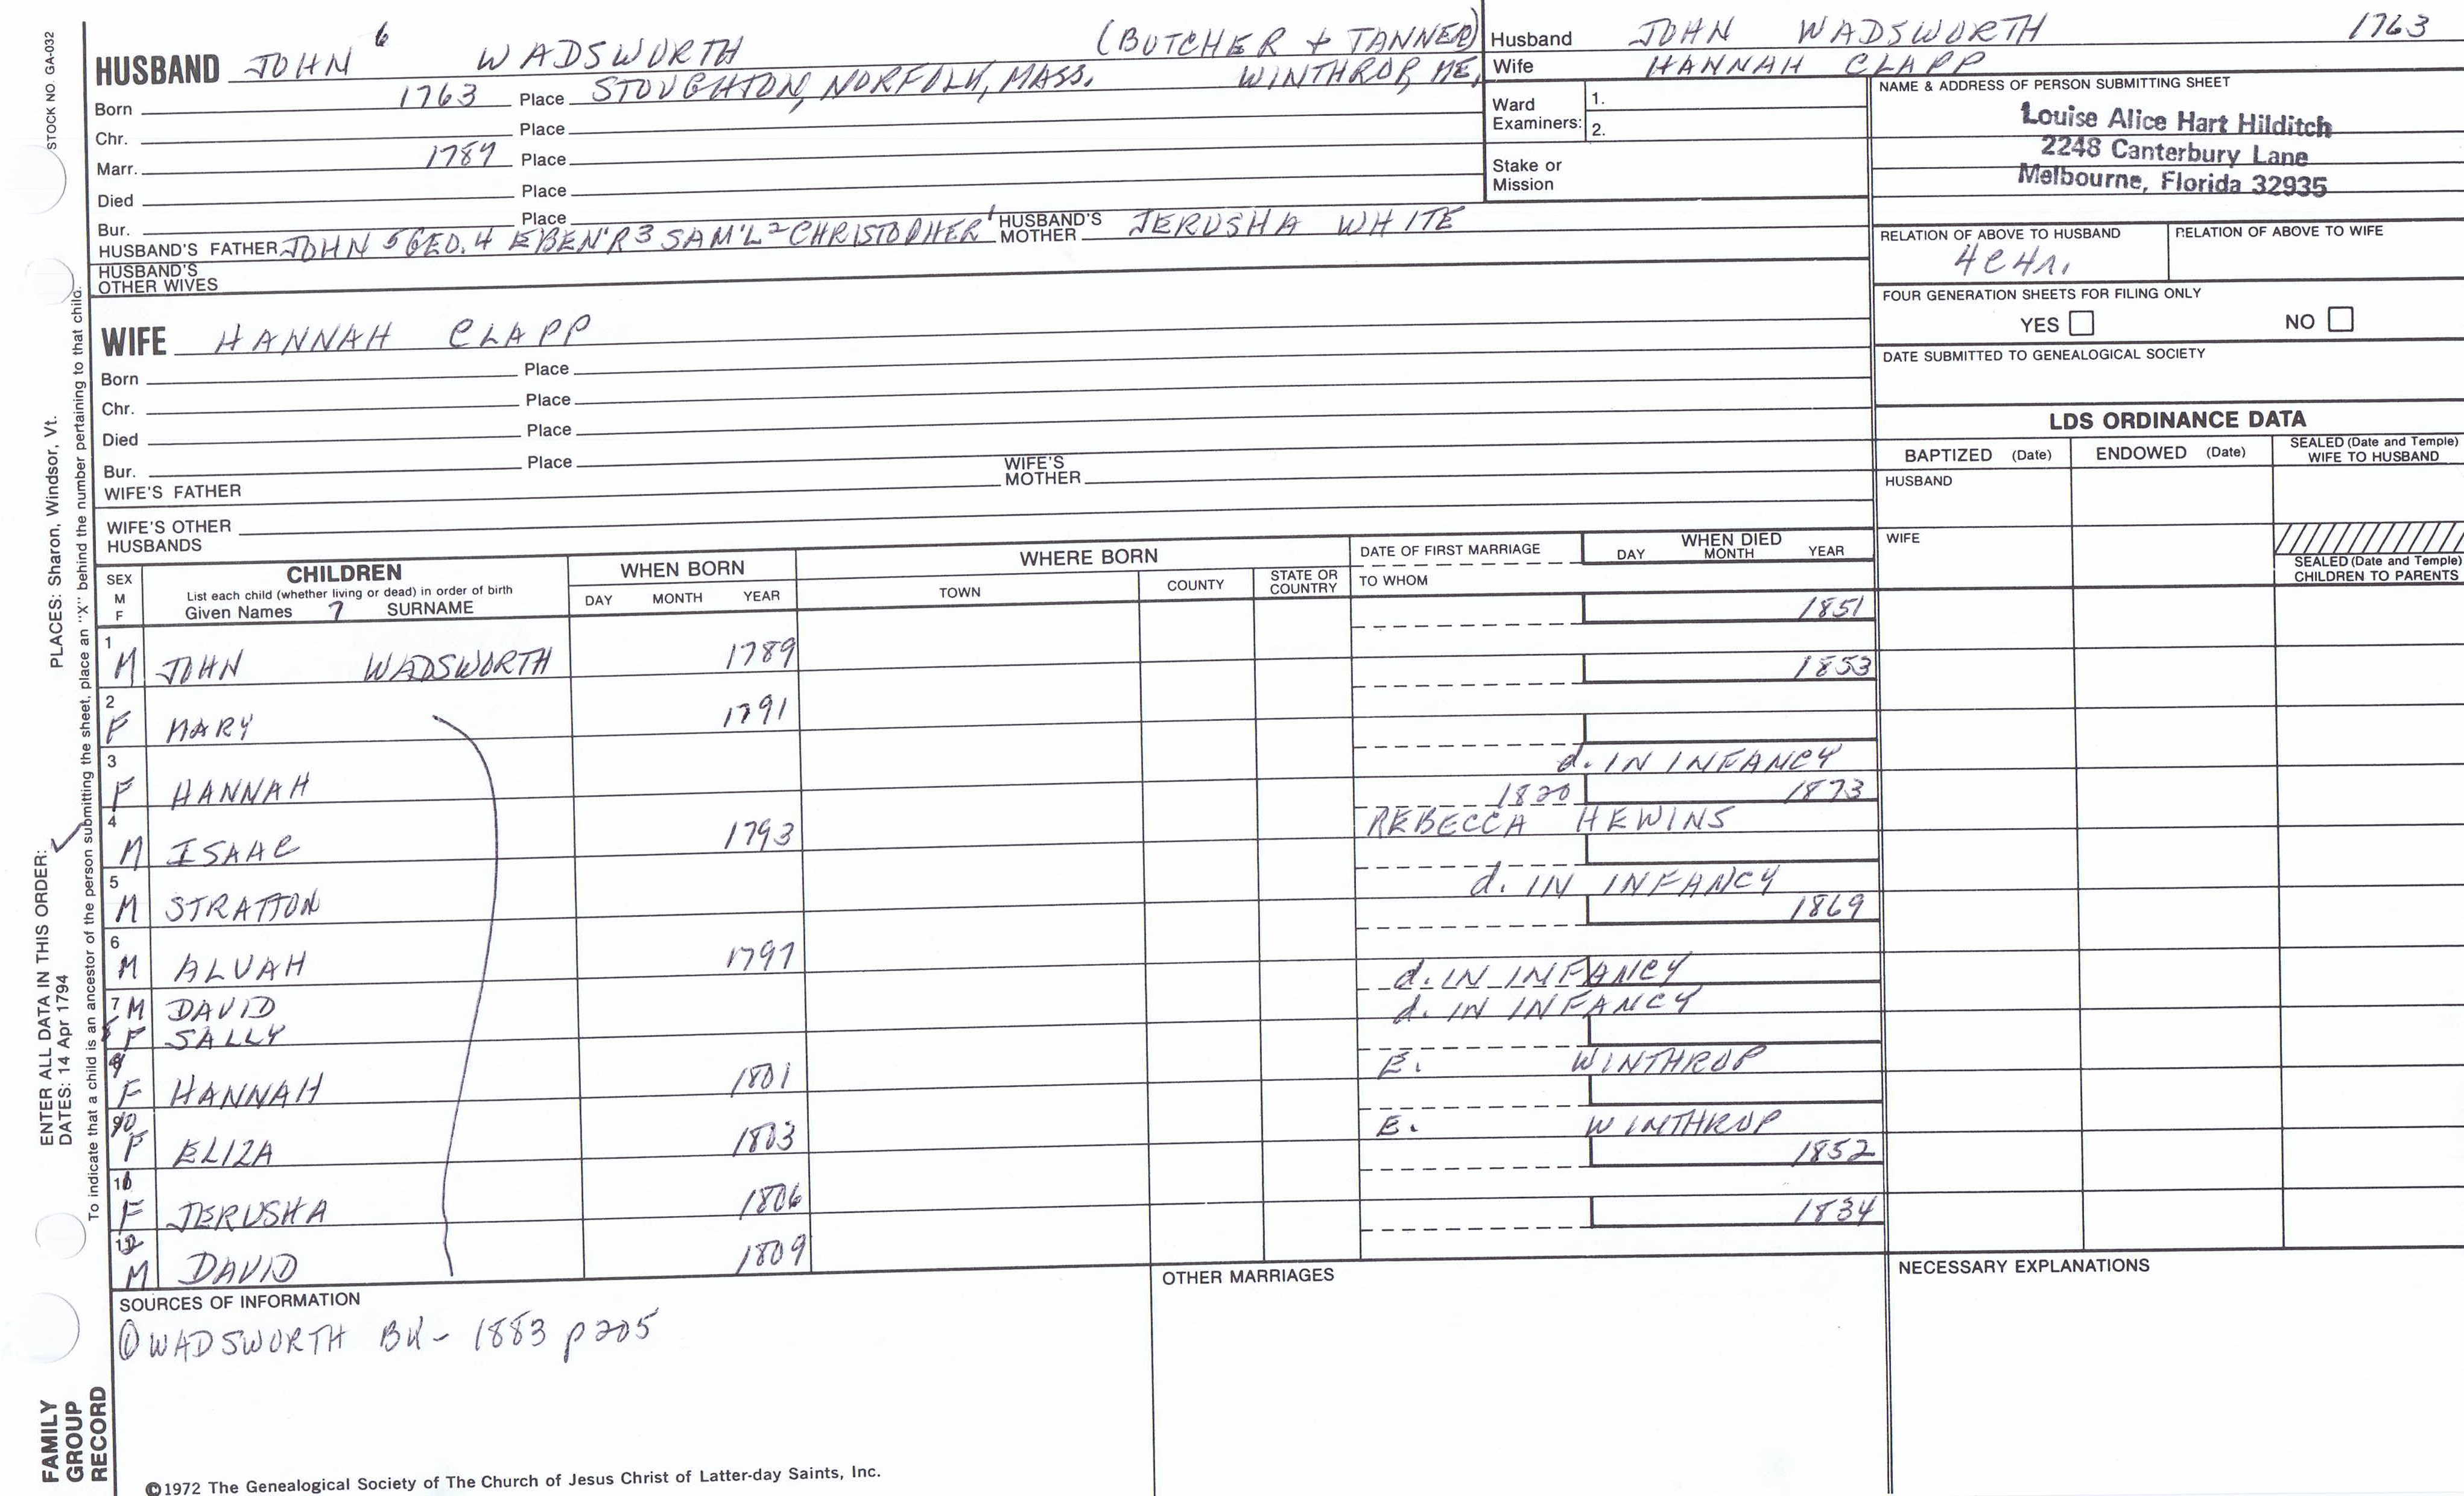 STOCK NO. GA-032
HUSBAND JOHN 6 WADSWORTH (BUTCHER + TANNER)
Born 1763 Place STOUGHTON, NORFOLK, MASS. WINTHROP, ME.
Chr. Place
Marr. 1789 Place
Died Place
Bur. Place
HUSBAND'S FATHER JOHN 5 GEO. 4 EBEN'R 3 SAM'L 2 CHRISTOPHER 1 HUSBAND'S MOTHER JERUSHA WHITE
HUSBAND'S OTHER WIVES
WIFE HANNAH CLAPP
Born Place
Chr. Place
Died Place
Bur. Place
WIFE'S FATHER WIFE'S MOTHER
WIFE'S OTHER HUSBANDS
Husband JOHN WADSWORTH 1763
Wife HANNAH CLAPP
Ward Examiners: 1.
2.
Stake or Mission
NAME & ADDRESS OF PERSON SUBMITTING SHEET
Louise Alice Hart Hilditch
2248 Canterbury Lane
Melbourne, Florida 32935
RELATION OF ABOVE TO HUSBAND RELATION OF ABOVE TO WIFE
FOUR GENERATION SHEETS FOR FILING ONLY
YES NO
DATE SUBMITTED TO GENEALOGICAL SOCIETY
LDS ORDINANCE DATA
BAPTIZED (Date) ENDOWED (Date) SEALED (Date and Temple) WIFE TO HUSBAND
HUSBAND
WIFE
SEALED (Date and Temple) CHILDREN TO PARENTS
SEX M F
CHILDREN
List each child (whether living or dead) in order of birth
Given Names 7 SURNAME
WHEN BORN
DAY MONTH YEAR
WHERE BORN
TOWN COUNTY STATE OR COUNTRY
DATE OF FIRST MARRIAGE
TO WHOM
WHEN DIED
DAY MONTH YEAR
1 M JOHN WADSWORTH 1789 1851
2 F MARY 1791 1853
3 F HANNAH d. IN INFANCY
4 M ISAAC 1793 1820 1873
REBECCA HEWINS
5 M STRATTON d. IN INFANCY
6 M ALVAH 1797 1869
7 M DAVID d. IN INFANCY
8 F SALLY d. IN INFANCY
9 F HANNAH 1801 E. WINTHROP
10 F ELIZA 1803 E. WINTHROP
11 F JERUSHA 1806 1852
12 M DAVID 1809 1834
SOURCES OF INFORMATION
① WADSWORTH BK - 1883 p 205
OTHER MARRIAGES
NECESSARY EXPLANATIONS
©1972 The Genealogical Society of The Church of Jesus Christ of Latter-day Saints, Inc.
ENTER ALL DATA IN THIS ORDER:
DATES: 14 Apr 1794
PLACES: Sharon, Windsor, Vt.
To indicate that a child is an ancestor of the person submitting the sheet, place an "X" behind the number pertaining to that child.
FAMILY GROUP RECORD